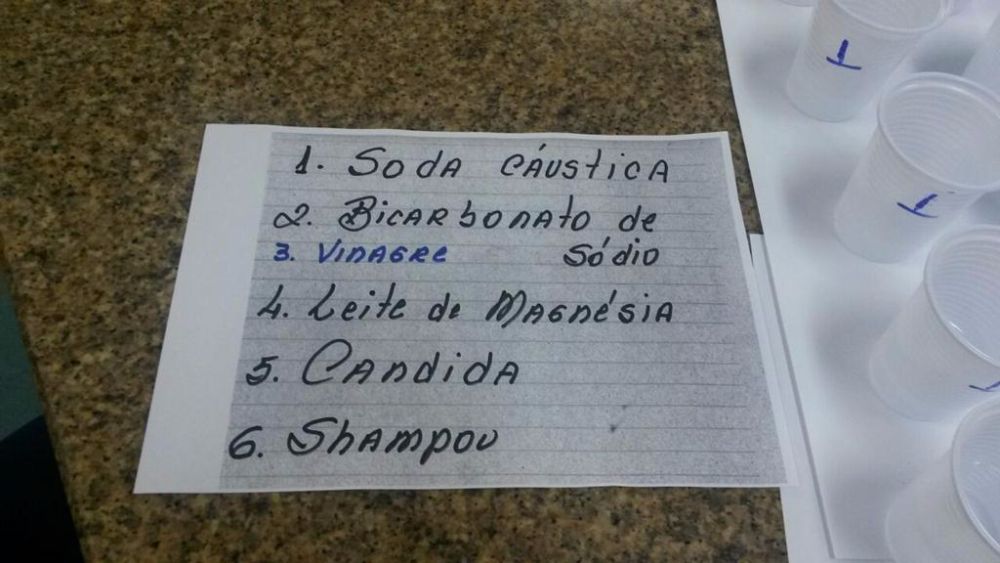 1. Soda cáustica
2. Bicarbonato de
3. Vinagre Sódio
4. Leite de Magnésia
5. Candida
6. Shampou
1
1
1